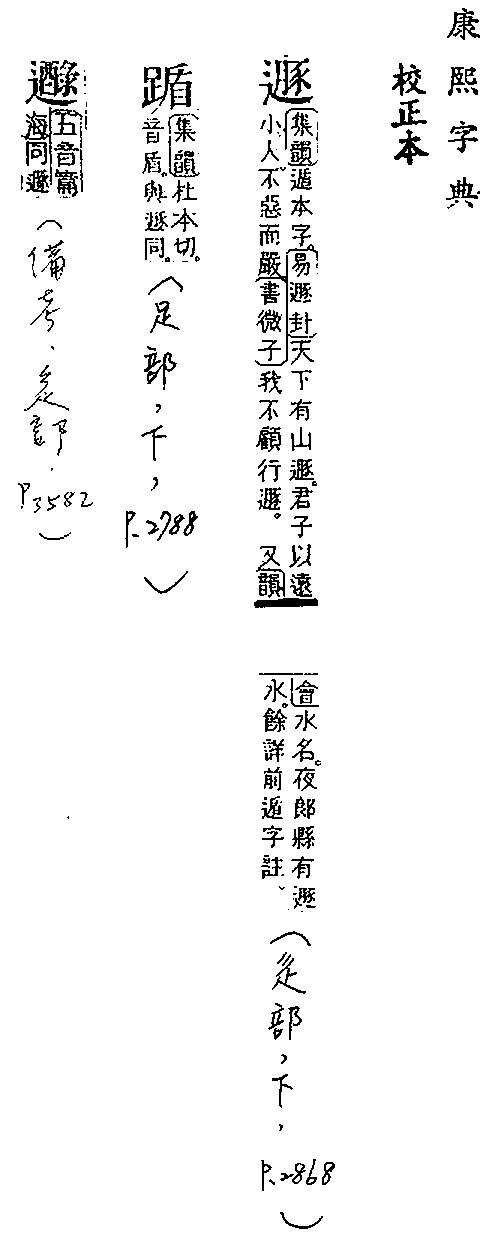 康熙字典
校正本
遯
集韻遁本字。易遯卦天下有山遯。君子以遠
小人、不惡而嚴。書微子我不顧行遯。又韻
會水名。夜郎縣有遯
水。餘詳前遁字註、
(辵部,下,P.2868)
踲
集韻杜本切。
音盾。與遯同。
(足部,下,P.2788)
五音篇
海同遯
(備考、辵部.P.3582)